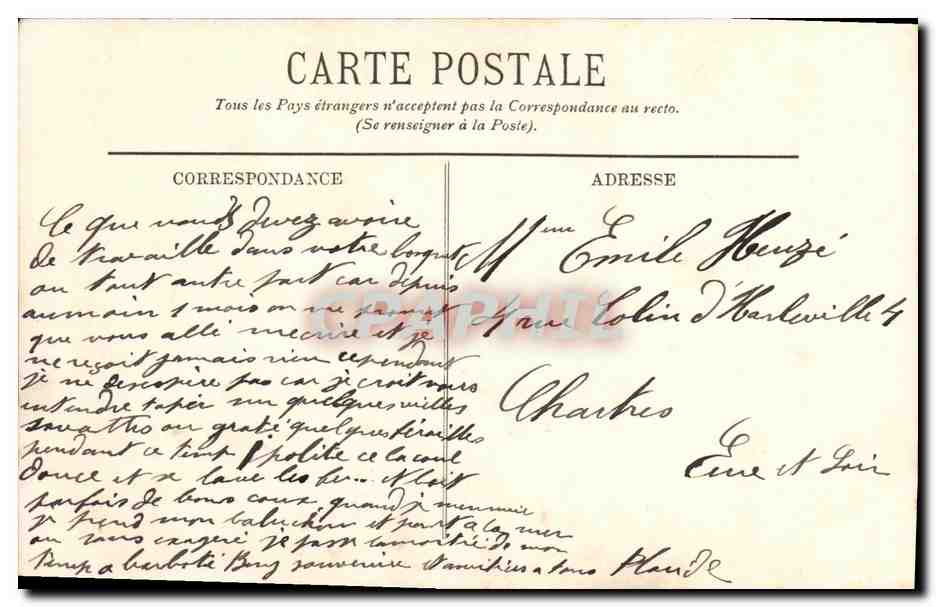 CARTE POSTALE
Tous les Pays étrangers n'acceptent pas la Correspondance au recto.
(Se renseigner à la Poste).
CORRESPONDANCE
Ce que vous devez avoire
de travaille dans votre bosquet
ou tout autre part car depuis
aumoin 1 mois on me promet
que vous allé mecrire et je
ne reçoit jamais rien cependant
je ne desespère pas car je croit vous
entendre taper sur quelques vieilles
savattes ou graté quelques férailles
pendant ce temp polite ce la coul
douce et se lave les
parfois de bons coux quand je mennuie
je prend mon baluchon et part à la mer
ou sans exagéré je passe la moitié de mon
temp a barboté Bons souvenire et amitiés a tous
ADRESSE
Mme Emile Heuzé
4 rue Colin d'Harleville 4
Chartres
Eure et Loir
CPAPHIL